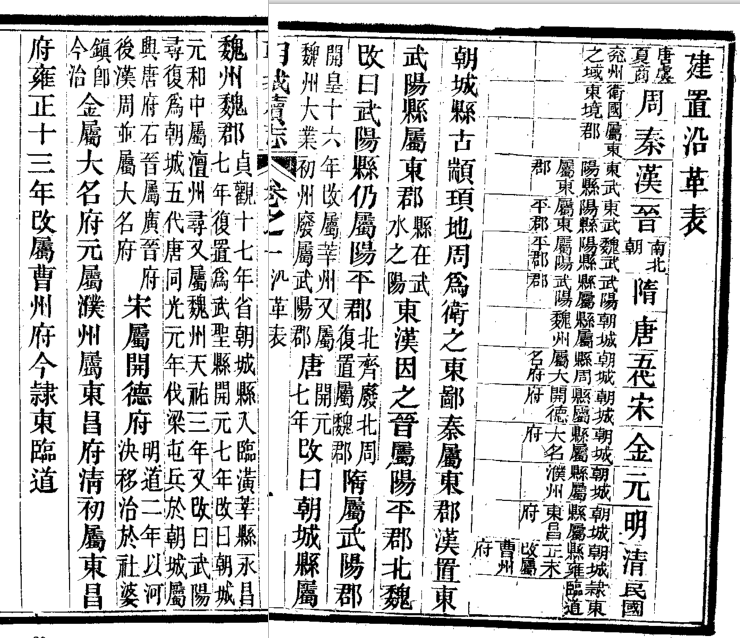 建置沿革表
唐虞夏商 周 秦 漢 晉 南北朝 隋 唐 五代 宋 金 元 明 清 民國
兗州之域
衛國東境
屬東郡
東武陽縣屬東郡
東武陽縣屬陽平郡
魏武陽縣屬陽平郡
武陽縣屬武陽郡
朝城縣屬魏州
朝城縣周屬大名府
朝城縣屬開德府
朝城縣屬大名府
朝城縣屬濮州
朝城縣屬東昌府
朝城縣雍正末改屬曹州府
隸東臨道
朝城縣古顓頊地周爲衛之東鄙秦屬東郡漢置東
武陽縣屬東郡縣在武水之陽東漢因之晉屬陽平郡北魏
改曰武陽縣仍屬陽平郡北齊廢北周復置屬魏郡隋屬武陽郡
開皇十六年改屬莘州又屬魏州大業初州廢屬武陽郡唐開元七年改曰朝城縣屬
卷之一 沿革表
魏州魏郡貞觀十七年省朝城縣入臨潢莘縣永昌七年復置爲武聖縣開元七年改曰朝城
元和中屬澶州尋又屬魏州天祐三年又改曰武陽尋復爲朝城五代唐同光元年伐梁屯兵於朝城屬
興唐府石晉屬廣晉府後漢周並屬大名府宋屬開德府明道二年以河決移治於社婆
鎮卽今治金屬大名府元屬濮州屬東昌府清初屬東昌
府雍正十三年改屬曹州府今隸東臨道